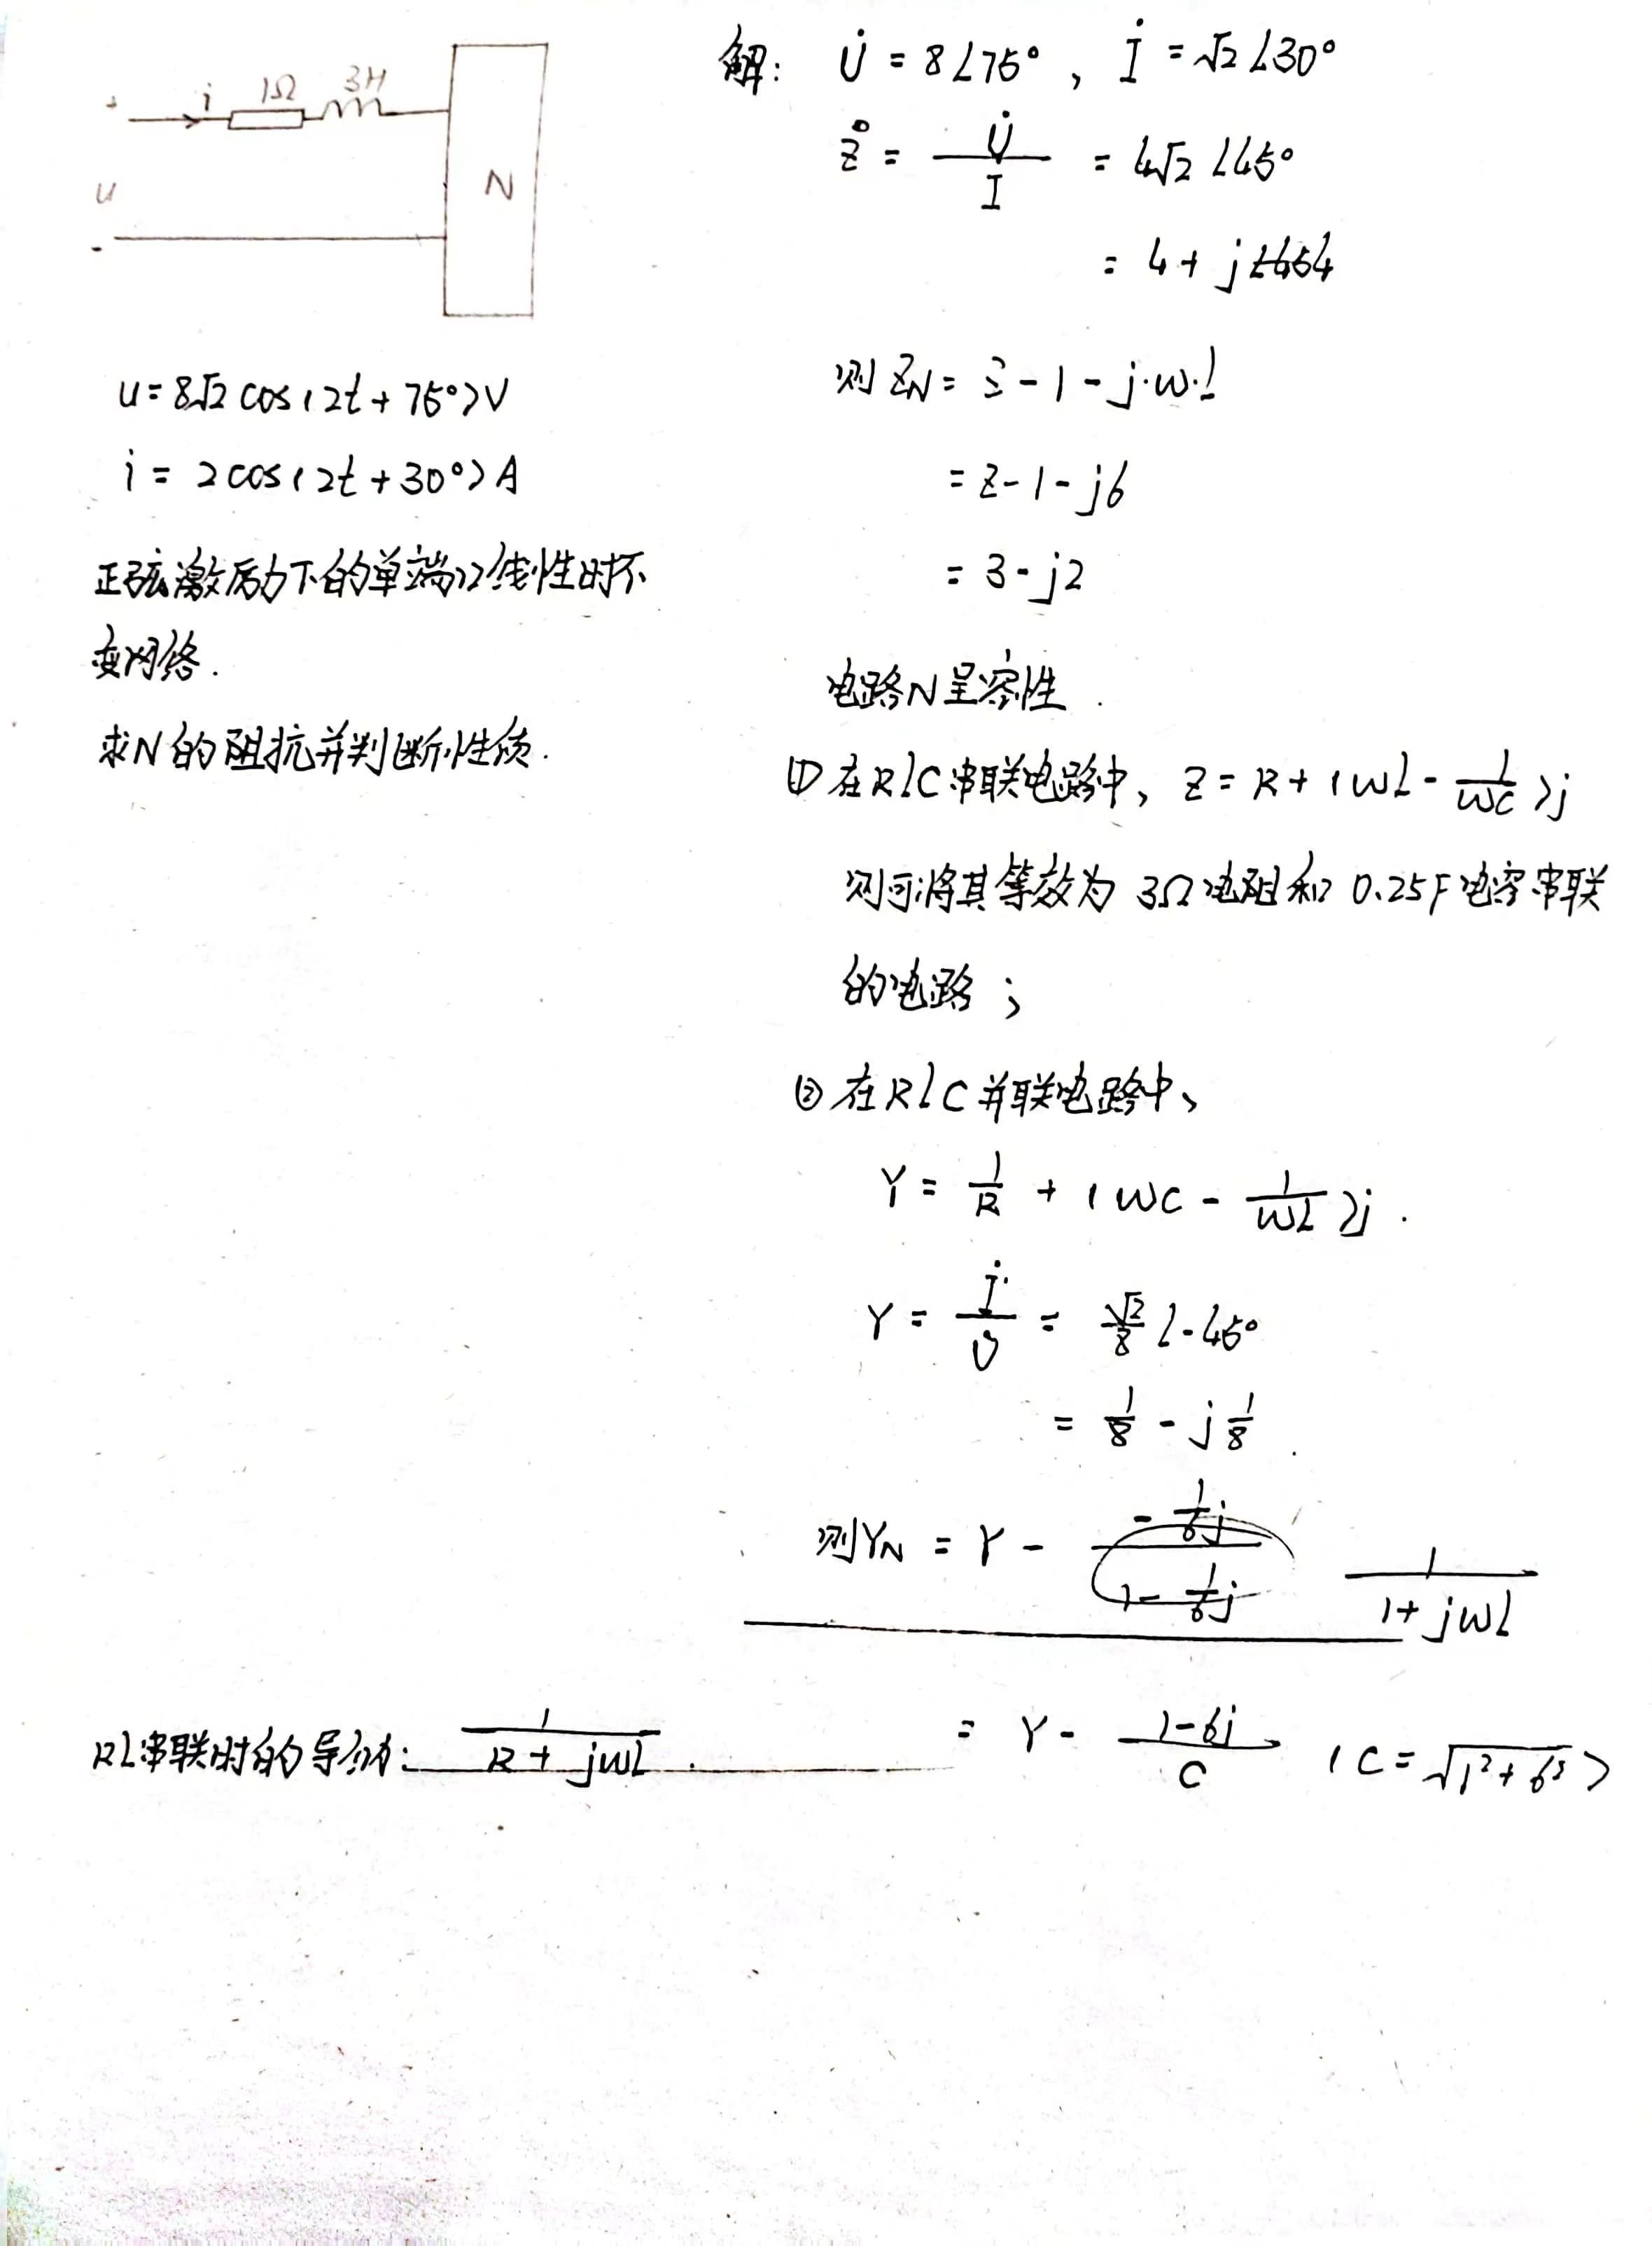 + i 1Ω 3H
u
N
-
u=8√2 cos(2t+75°)V
i = 2cos(2t+30°)A
正弦激励下的单端口线性时不
变网络.
求N的阻抗并判断性质.
解: U̇ = 8∠75°, İ = √2∠30°
Z = U̇/I = 4√2∠45°
= 4+j4
则 ZN = Z-1-j·w·L
= Z-1-j6
= 3-j2
电路N呈容性.
① 在RLC串联电路中, Z = R+(wL-1/wC)j
则可将其等效为 3Ω电阻和 0.25F电容串联
的电路;
② 在RLC并联电路中、
Y = 1/R + (wC - 1/wL)j.
Y = İ/U̇ = √2/8∠-45°
= 1/8 - j1/8
则YN = Y - (-1/6j)/(1-1/6j) 1/(1+jwL)
RL串联时的导纳: 1/(R+jwL)
= Y - (1-6j)/C (C=√(1²+6²))